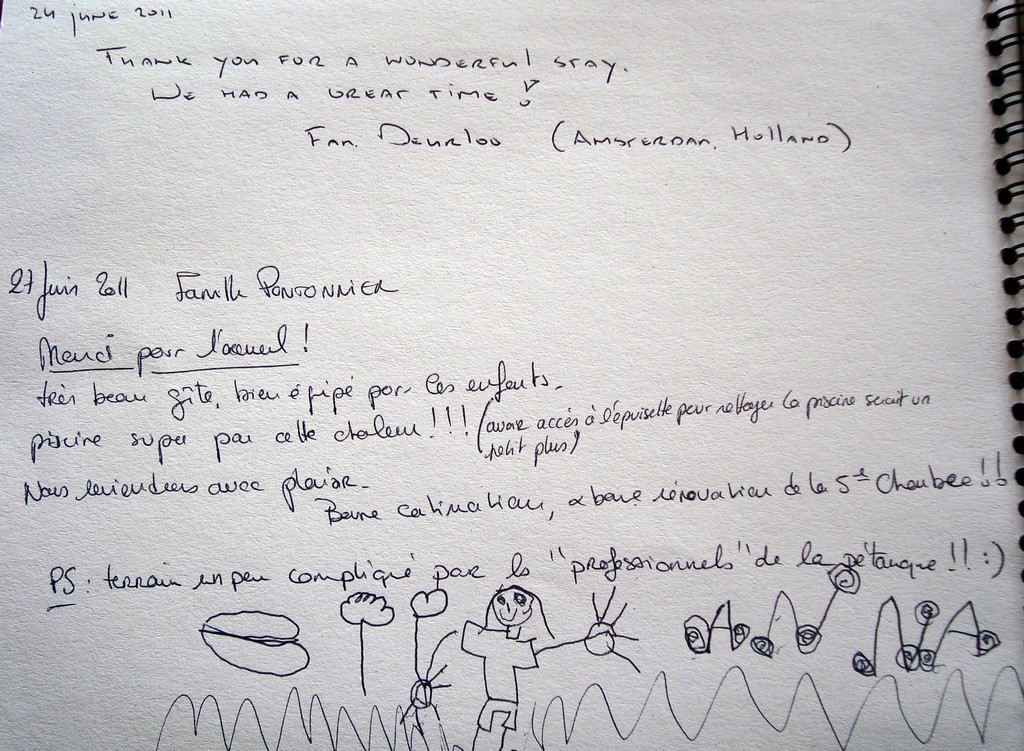 24 JUNE 2011
THANK YOU FOR A WONDERFUL STAY.
WE HAD A GREAT TIME !
FAM. DEURLOO (AMSTERDAM, HOLLAND)
27 Juin 2011 Famille PONTONNIER
Merci pour l'accueil !
très beau gîte, bien équipé pour les enfants.
piscine super par cette chaleur !!! (avoir accès à l'épuisette pour nettoyer la piscine serait un
petit plus)
Nous reviendrons avec plaisir.
Bonne continuation, & bonne rénovation de la 5è Chambre !!
PS : terrain un peu compliqué par les "professionnels" de la pétanque !! :)